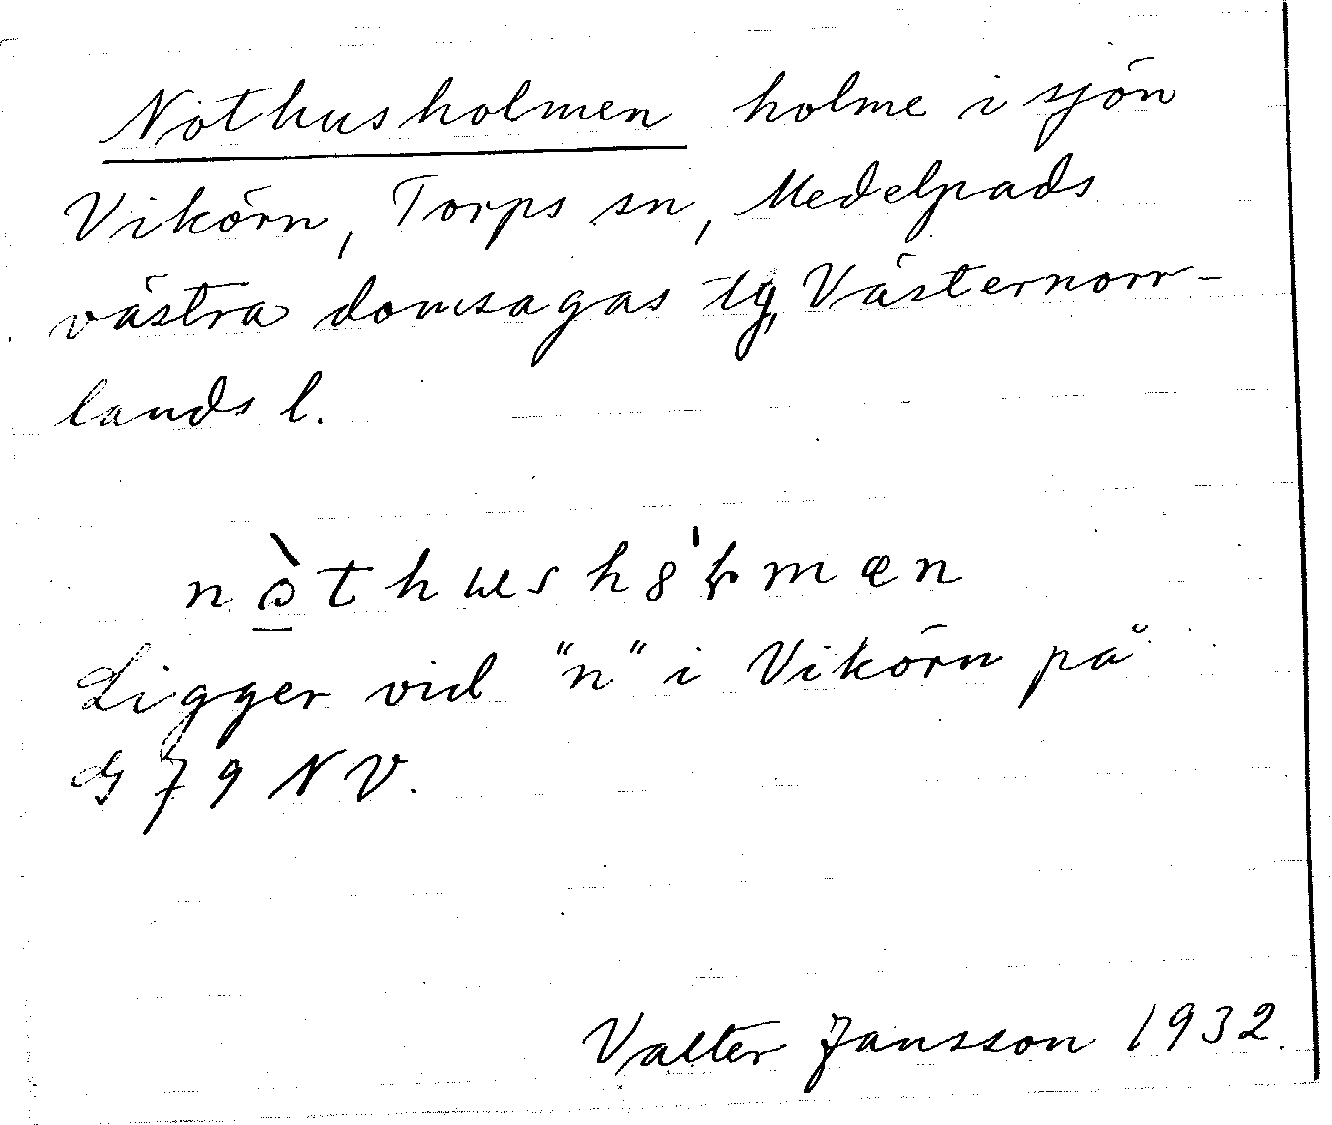 Nothusholmen holme i sjön
Vikörn, Torps sn, Medelpads
västra domsagas tg, Västernorr-
lands l.
Ligger vid "n" i Vikörn på
G 79 NV.
Valter Jansson 1932.